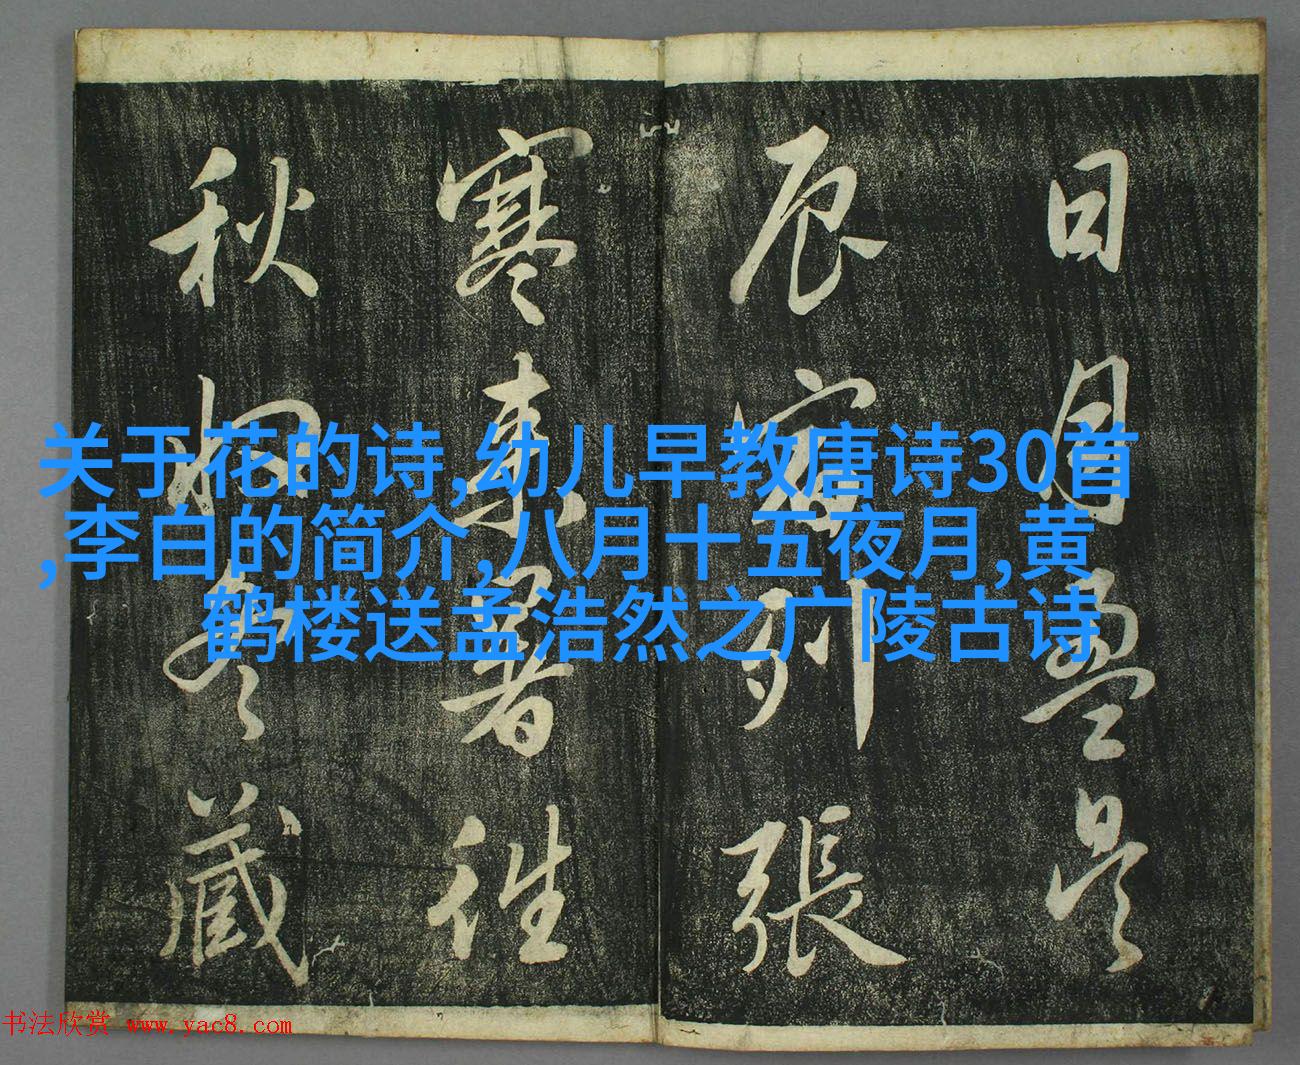 日月盈昃
辰宿列張
寒來暑往
秋收冬藏
关于花的诗,幼儿早教唐诗30首
,李白的简介,八月十五夜月,黄
鹤楼送孟浩然之广陵古诗
书法欣赏 www.yac8.com